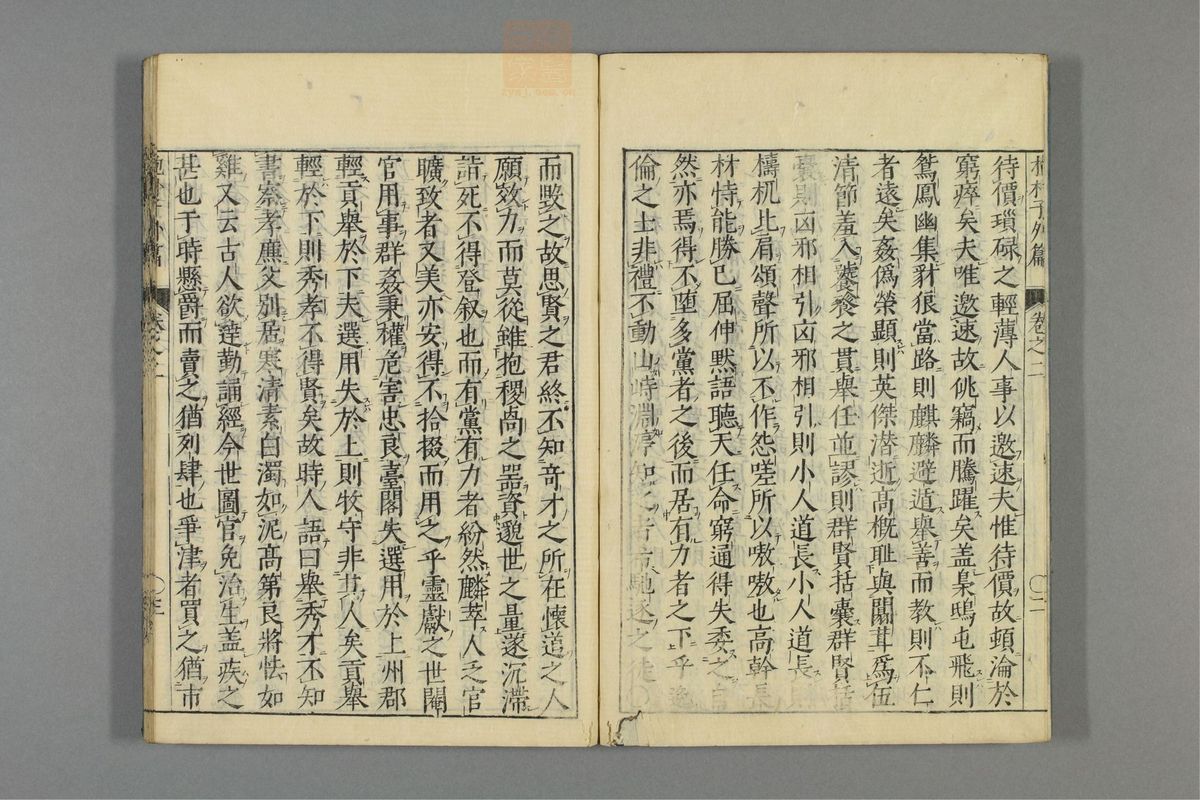 抱朴子外篇
卷之二
〇二
待價瑣碌之輕薄人事以邀速夫惟待價故頓淪於
窮瘁矣夫唯邀速故佻竊而騰躍矣盖梟鴟屯飛則
鴛鳳幽集豺狼當路則麒麟遐遁舉善而教則不仁
者遠矣姦僞榮顯則英傑潛逝高槪耻與闒茸爲伍
清節羞入饕餮之貫舉任並謬則群賢括囊群賢括
囊則凶邪相引凶邪相引則小人道長小人道長
檮杌比肩頌聲所以不作怨嗟所以嗷嗷也高幹長
材恃能勝己屈伸默語聽天任命窮通得失委之自
然亦焉得不墮多黨者之後而居有力者之下乎逸
倫之士非禮不動山峙淵渟知之者希馳逐之徒
而斁之故思賢之君終不知奇才之所在懷道之人
願效力而莫從雖抱稷卨之器資邈世之量遂沉滯
詣死不得登叙也而有黨有力者紛然麟萃人乏官
曠致者又美亦安得不拾掇而用之乎靈獻之世閹
官用事群姦秉權危害忠良臺閣失選用於上州郡
輕貢舉於下夫選用失於上則牧守非其人矣貢舉
輕於下則秀孝不得賢矣故時人語曰舉秀才不知
書察孝廉父別居寒清素白濁如泥高第良將怯如
雞又云古人欲達勤誦經今世圖官免治生盖疾之
甚也于時懸爵而賣之猶列肆也爭津者買之猶市
卷之二
〇三